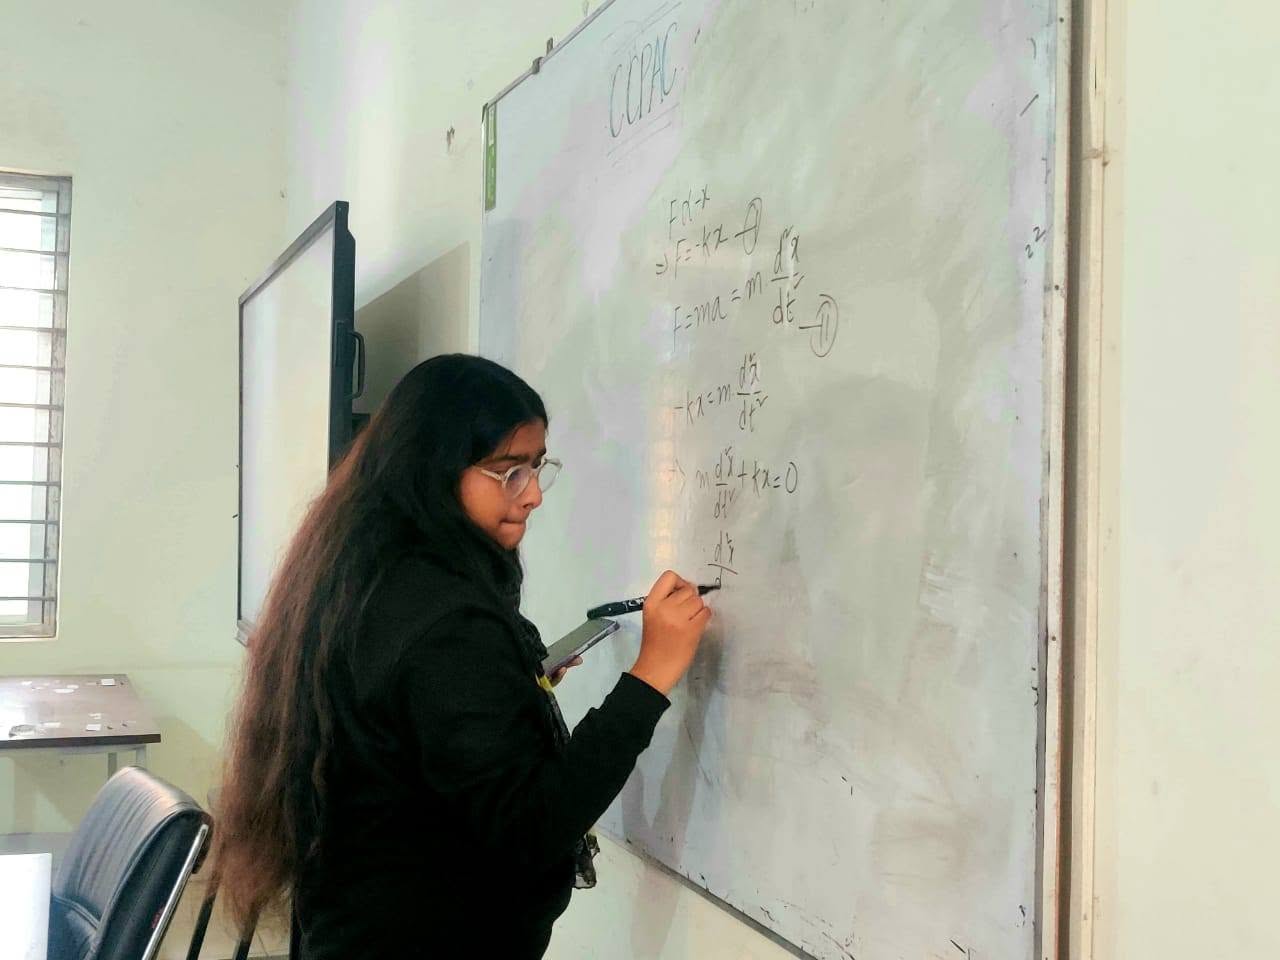 CCPAC
F α -x
⇒ F = -kx — ①
F = ma = m · d²x/dt² — ⑪
-kx = m · d²x/dt²
⇒ m d²x/dt² + kx = 0
d²x/d